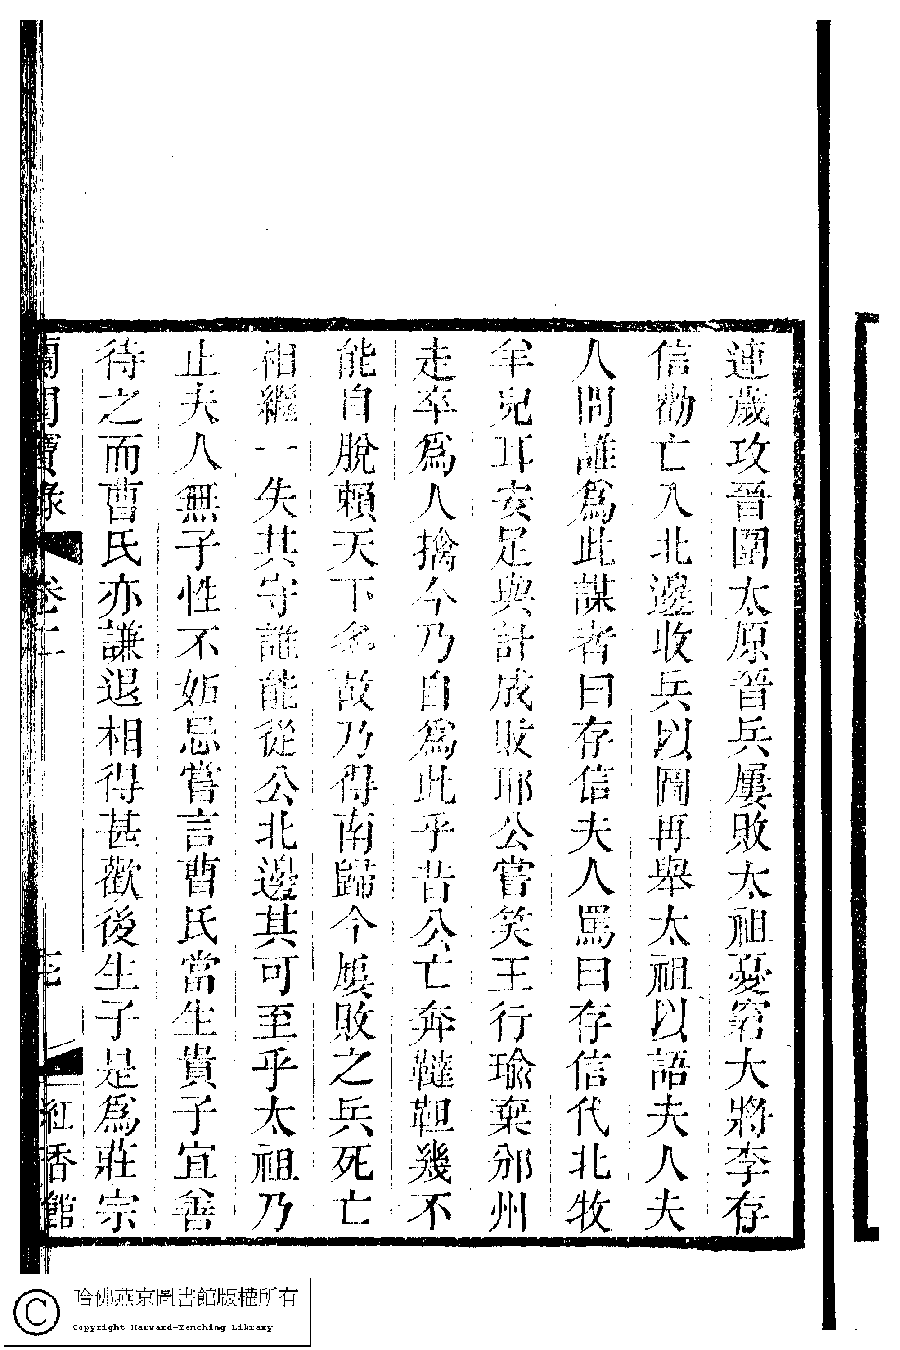 連歲攻晉圍太原晉兵屢敗太祖憂窘大將李存
信勸亡入北邊收兵以圖再舉太祖以語夫人夫
人問誰爲此謀者曰存信夫人罵曰存信代北牧
羊兒耳安足與計成敗耶公嘗笑王行瑜棄邠州
走卒爲人擒今乃自爲此乎昔公亡奔韃靼幾不
能自脫賴天下多故乃得南歸今屢敗之兵死亡
相繼一失其守誰能從公北邊其可至乎太祖乃
止夫人無子性不妬忌嘗言曹氏當生貴子宜善
待之而曹氏亦謙退相得甚歡後生子是爲莊宗
蘭閨寶錄 卷二
紅香館
哈佛燕京圖書館版權所有
Copyright Harvard-Yenching Library